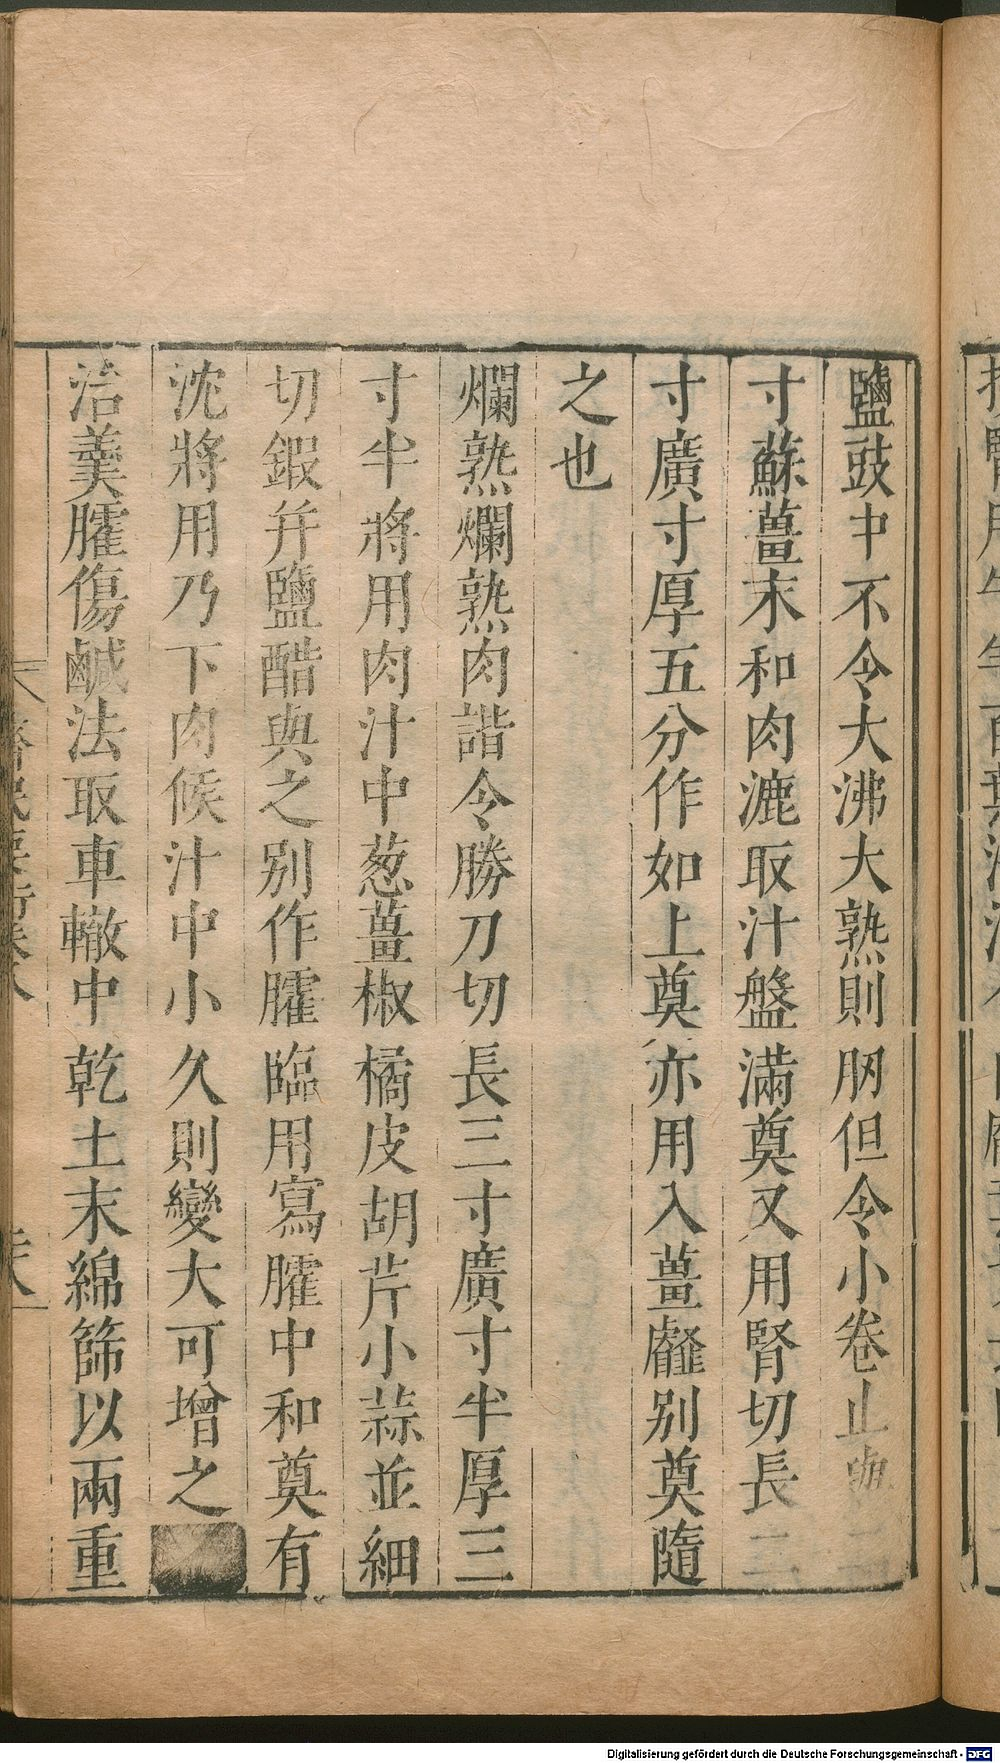 鹽豉中不令大沸大熟則肕但令小卷止與二
寸蘇薑末和肉漉取汁盤滿奠又用腎切長二
寸廣寸厚五分作如上奠亦用入薑韰别奠隨
之也
爛熟爛熟肉諧令勝刀切長三寸廣寸半厚三
寸半將用肉汁中葱薑椒橘皮胡芹小蒜並細
切鍜并鹽醋與之别作臛臨用寫臛中和奠有
沈將用乃下肉候汁中小久則變大可增之
治羹臛傷鹹法取車轍中乾土末綿篩以兩重
齊民要術卷八
Digitalisierung gefördert durch die Deutsche Forschungsgemeinschaft - DFG